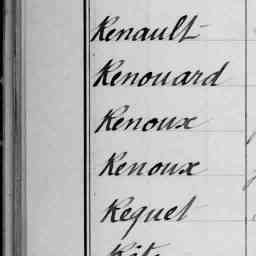 Renault
Renouard
Renoux
Renoux
Requet